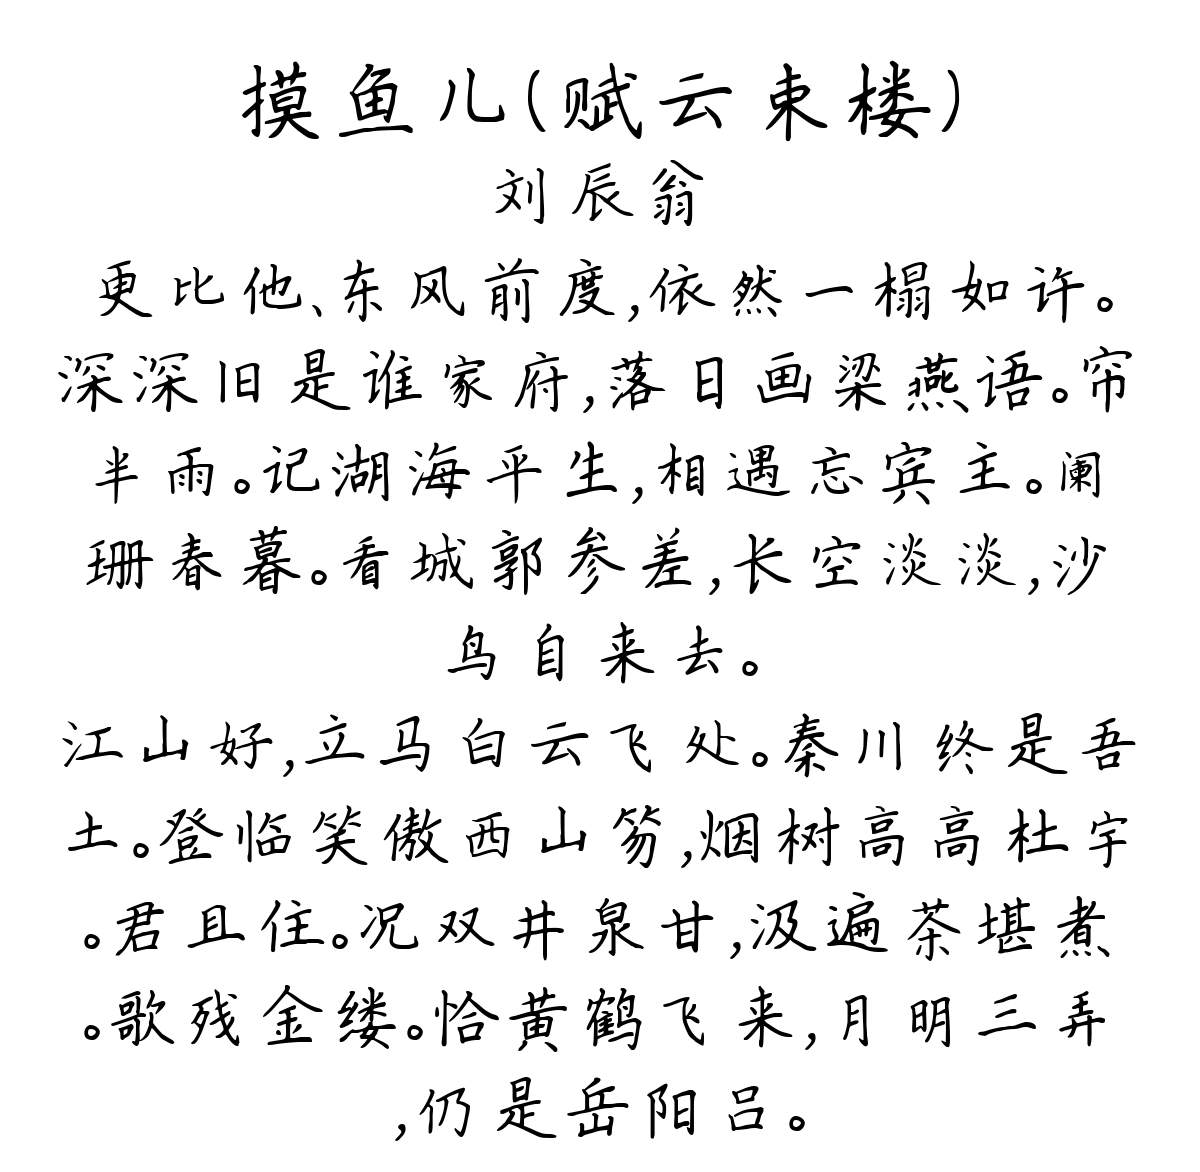 摸鱼儿(赋云束楼)
刘辰翁
更比他、东风前度,依然一榻如许。
深深旧是谁家府,落日画梁燕语。帘
半雨。记湖海平生,相遇忘宾主。阑
珊春暮。看城郭参差,长空淡淡,沙
鸟自来去。
江山好,立马白云飞处。秦川终是吾
土。登临笑傲西山笏,烟树高高杜宇
。君且住。况双井泉甘,汲遍茶堪煮
。歌残金缕。恰黄鹤飞来,月明三弄
,仍是岳阳吕。